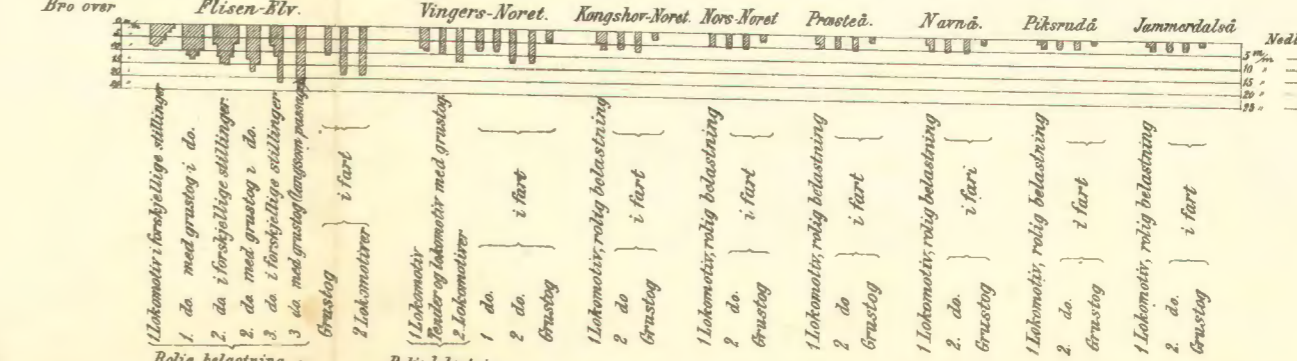 Bro over
Flisen-Elv.
Vingers-Noret.
Kongshov-Noret.
Nors-Noret
Præsteå.
Navnå.
Piksrudå
Jammerdalså
5 m/m
10 "
15 "
20 "
25 "
1 Lokomotiv i forskjellige stillinger
1. do. med grustog i do.
2. do i forskjellige stillinger.
2. do med grustog i do.
3. do i forskjellige stillinger
3 do med grustog (langsom passage)
Grustog
2 Lokomotiver
i fart
1 Lokomotiv
Tender og lokomotiv med grustog
2. Lokomotiver
1 do.
2 do.
Grustog
i fart
1 Lokomotiv, rolig belastning
2 do
Grustog
i fart
1 Lokomotiv, rolig belastning
2 do.
Grustog
i fart
1 Lokomotiv, rolig belastning
2 do
Grustog
i fart
1 Lokomotiv, rolig belastning
2 do.
Grustog
i fart
1 Lokomotiv, rolig belastning
2. do.
Grustog
i fart
1 Lokomotiv, rolig belastning
2. do.
Grustog
i fart
Rolig belastning